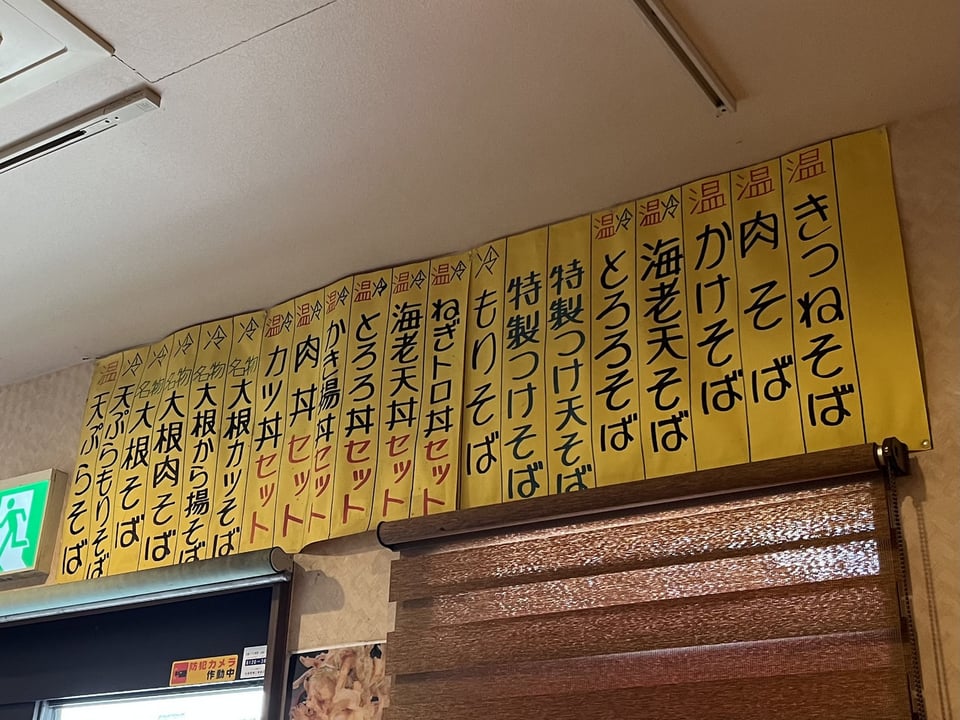 温 きつねそば
温 肉そば
温 かけそば
温冷 海老天そば
温冷 とろろそば
特製つけ天そば
特製つけそば
冷 もりそば
温冷 ねぎトロ丼セット
温冷 海老天丼セット
温冷 とろろ丼セット
温冷 かき揚丼セット
温冷 肉丼セット
温冷 カツ丼セット
冷 名物 大根カツそば
冷 名物 大根から揚そば
冷 名物 大根肉そば
冷 名物 大根そば
冷 天ぷらもりそば
温 天ぷらそば
防犯カメラ
作動中